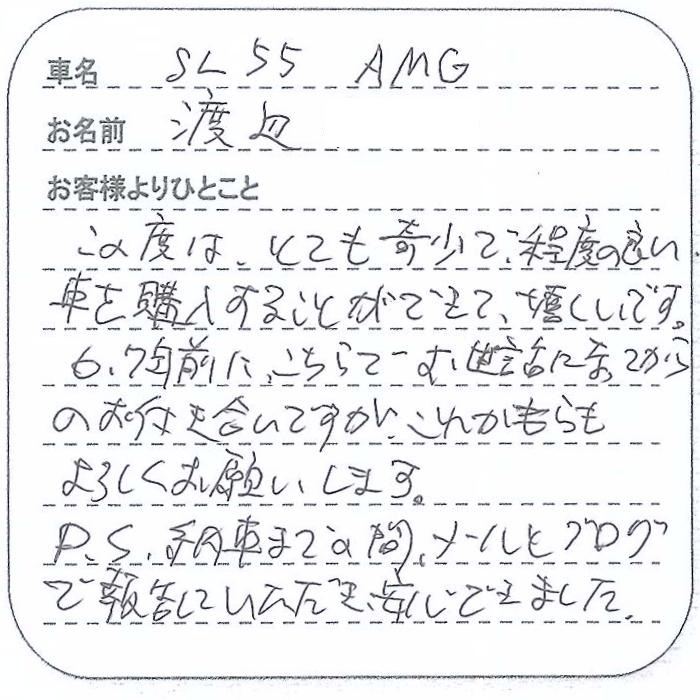 車名 SL55 AMG
お名前 渡辺
お客様よりひとこと
この度は、とても奇少で、程度の良い
車を購入することができて、嬉しいです。
6、7年前に、こちらでお世話になってから
のお付き合いですが、これからも
よろしくお願いします。
P.S. 納車までの間、メールとブログ
で報告していただき、安心できました。